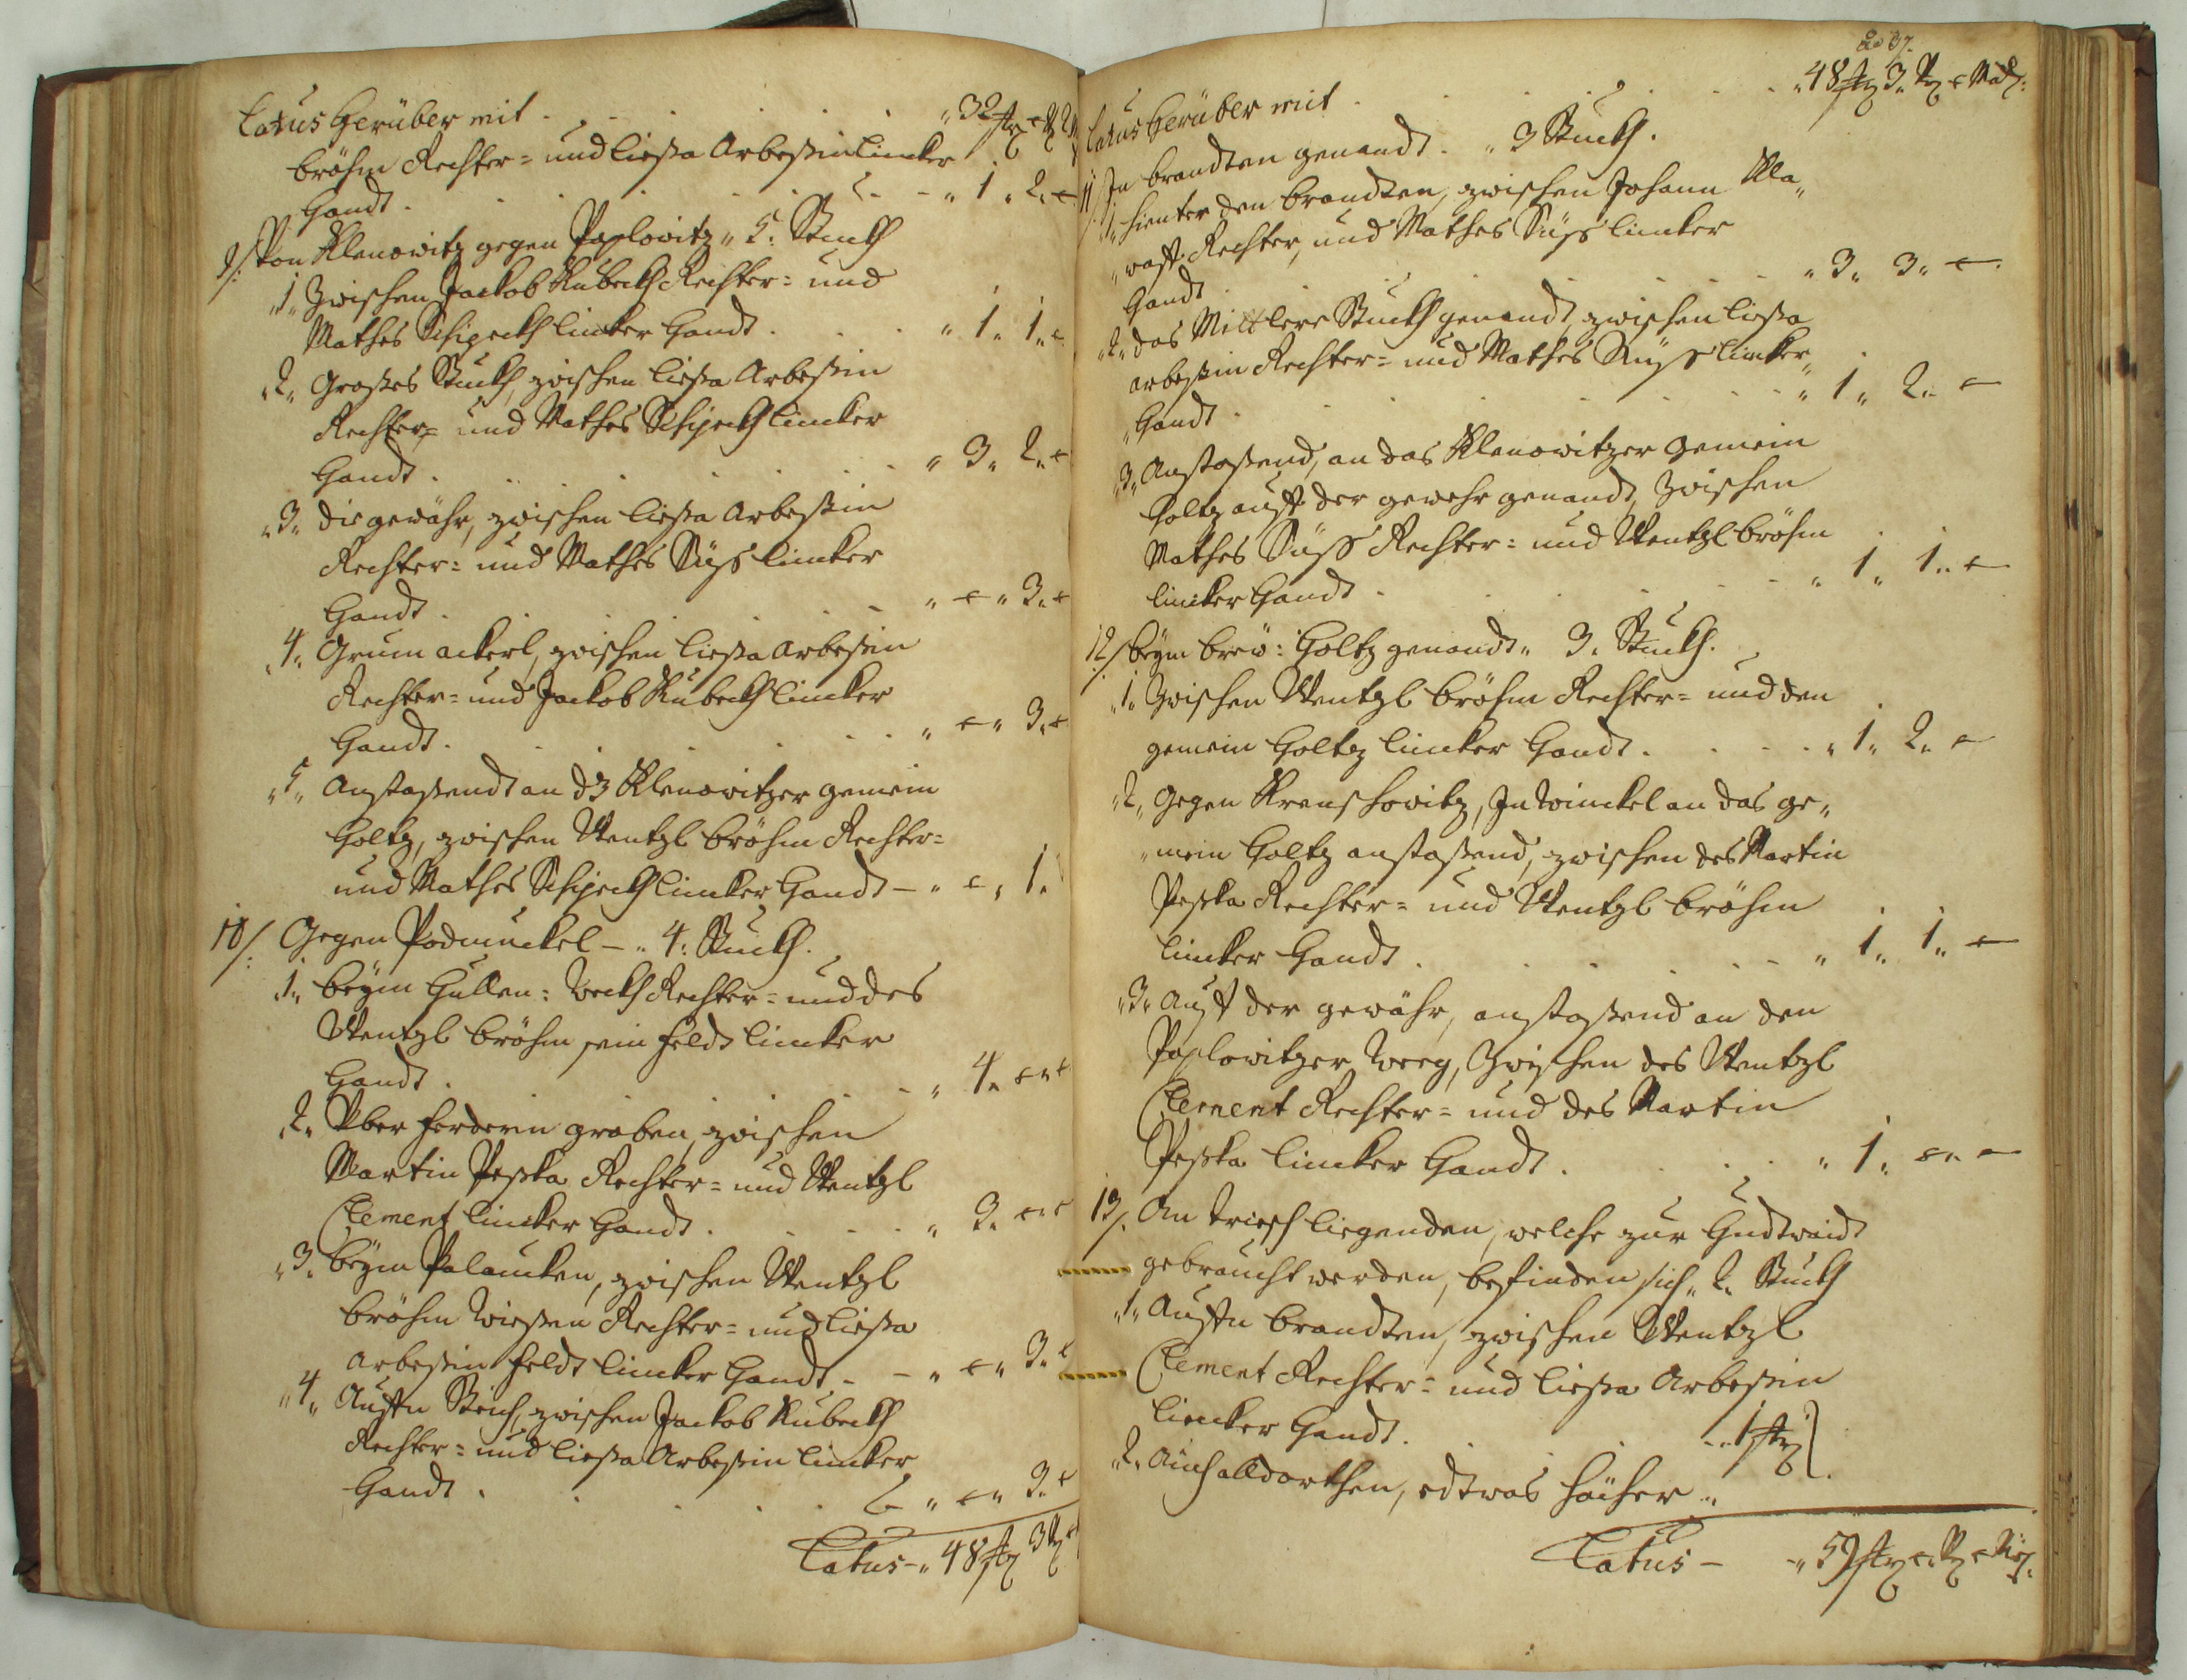 Latus herüber mit . . . . . „ 32 str
Bröhm Rechter= und Liesza Arbeszin lincker
Handt . . . . . „ 1 „ 2 „ –
9/: Von Klenowitz gegen Poplowitz „ 5. Stuckh
„1„ Zwischen Jackob Kubeckh Rechter= und
Mathes Schipeckh lincker Handt . . . „ 1„ 1„ –
„2„ Großes Stuckh, zwischen Liesza Arbeszin
Rechter= und Mathes Schipeckh lincker
Handt . . . . . „ 3„ 2„ –
„3„ die gewähr, zwischen Liesza Arbeszin
Rechter= und Mathes Süss lincker
Handt . . . . . „ – „ 3„ –
„4„ Grum ackerl, zwischen Liesza Arbeszin
Rechter= und Jackob Kubeckh lincker
Handt . . . . . „ – „ 3„ –
„5„ Anstoßendt an d3 Klenowitzer gemein
Holtz, zwischen Wentzl Bröhm Rechter=
und Mathes Schipeckh lincker Handt – „ – „ 1„
10/: Gegen Podmuckel – „ 4: Stuckh.
„1„ Beym Hullen: Weckh Rechter= und des
Wentzl Bröhm sein Feldt lincker
Handt . . . . . „ 4„ – „ –
„2„ Über graben, zwischen
Martin Peszka Rechter= und Wentzl
Clement lincker Handt . . . „ 3„ – „ –
„3„ Beym Palancken, zwischen Wentzl
Bröhm Wießen Rechter= und Liesza
Arbeszin Feldt lincker Handt – – „ – „ 3„ –
„4„ Aufn Teich, zwischen Jackob Kubeckh
Rechter= und Liesza Arbeszin lincker
Handt . . . . . „ – „ 3„ –
Latus – „ 48 str 3
37.
Latus herüber mit . . . . . „ 48 str 3
11/: In Brandten genandt . „ 3 Stuckh.
„1„ hienter den Brandten, zwischen Johann Kla„
„ Rechter, und Mathes Süss lincker
Handt . . . . . „ 3„ 3„ –
„2„ das Mittlere Stuckh genandt, zwischen Liesza
Arbeszin Rechter= und Mathes Süss lincker„
„Handt . . . . . „ 1„ 2„ –
„3„ Anstoßend, an das Klenowitzer gemein
Holtz auff der gewehr genandt, Zwischen
Mathes Süss Rechter= und Wentzl Bröhm
lincker Handt . . . . . „ 1„ 1„ –
12/: Beym Brew: Holtz genandt „ 3. Stuckh.
„1„ Zwischen Wentzl Bröhm Rechter= und den
gemein Holtz lincker Handt . . . „ 1„ 2„ –
„2„ Gegen Krenschowitz, In Winckel an das ge„
„mein Holtz anstoßend, zwischen des Martin
Peszka Rechter= und Wentzl Bröhm
lincker Handt . . . . . „ 1„ 1„ –
„3„ Auff der gewähr, anstoßend an den
Poplowitzer Weeg, Zwischen des Wentzl
Clement Rechter= und des Martin
Peszka lincker Handt . . . „ 1„ – „ –
13/: An Triesch liegenden, welche zur Hudtwaidt
gebraucht werden, befinden sich „ 2„ Stuckh
„1„ Aufn Brandten, zwischen Wentzl
Clement Rechter= und Liesza Arbeszin
lincker Handt . . . „ 1 str
„2„ Auch alldorthen, edtwas höcher „
Latus – „ 59 str